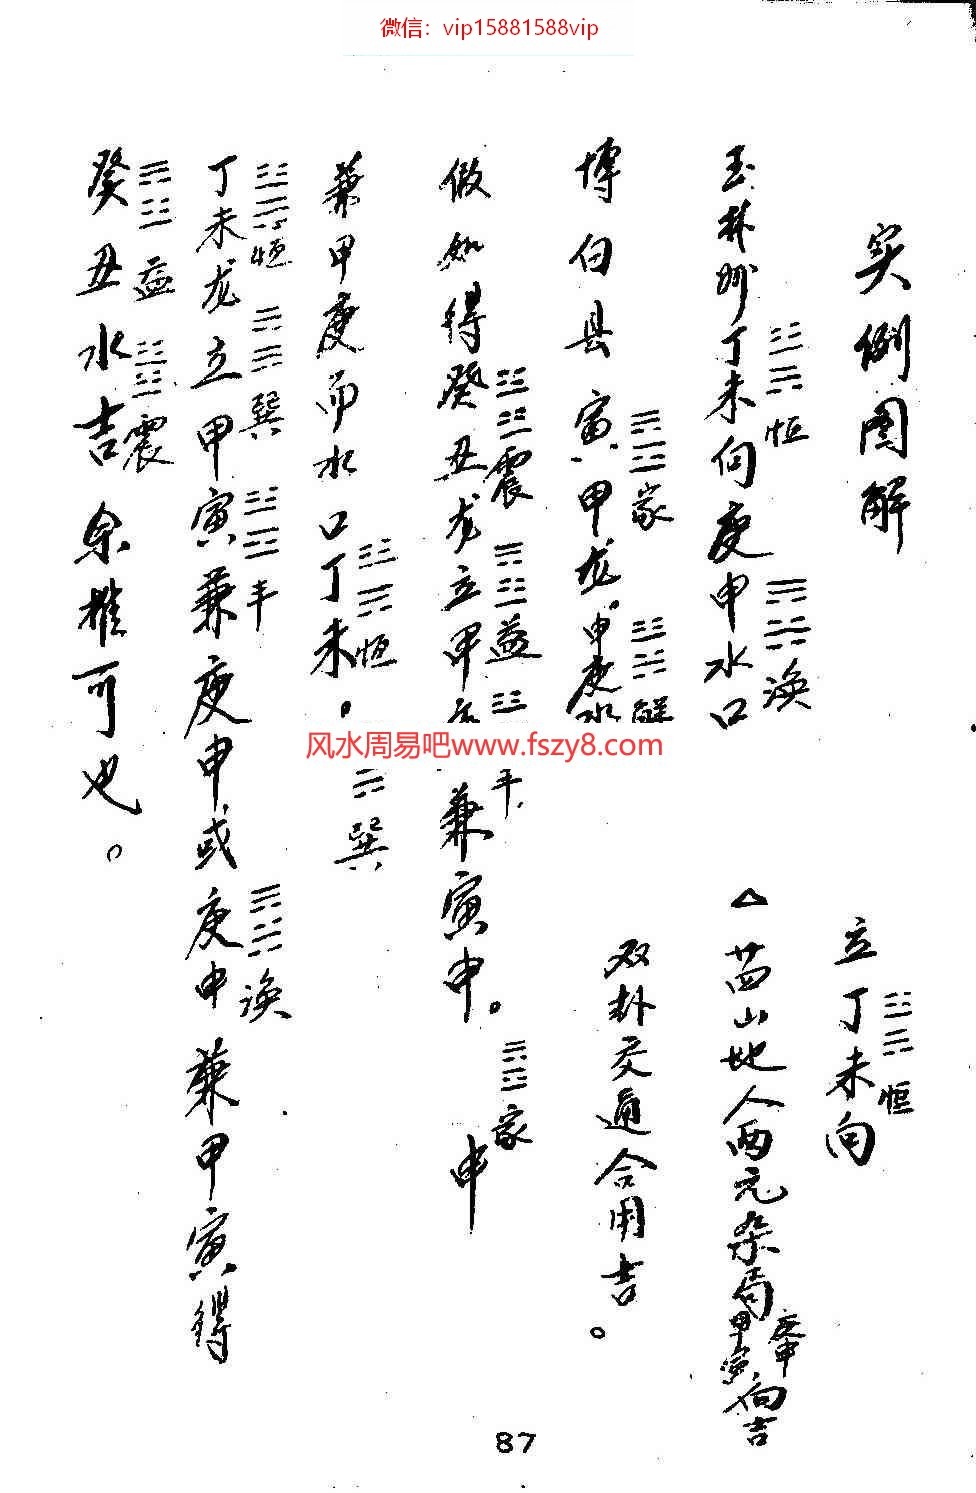 微信：vip15881588vip
实例图解
立丁未向
恒
玉林州丁未向庚申水口
恒
涣
△廿四山地人两元杂局
甲寅
庚申
向吉
博白县寅甲龙申庚水
家
解
双卦交通合用吉。
做如得癸丑龙立甲
震
益
丰
兼寅申。
家
申
兼甲庚而水口丁未。
恒
巽
丁未龙立甲寅兼庚申或庚申兼甲寅得
恒
巽
丰
涣
癸丑水吉余推可也。
益
震
风水周易吧www.fszy8.com
87